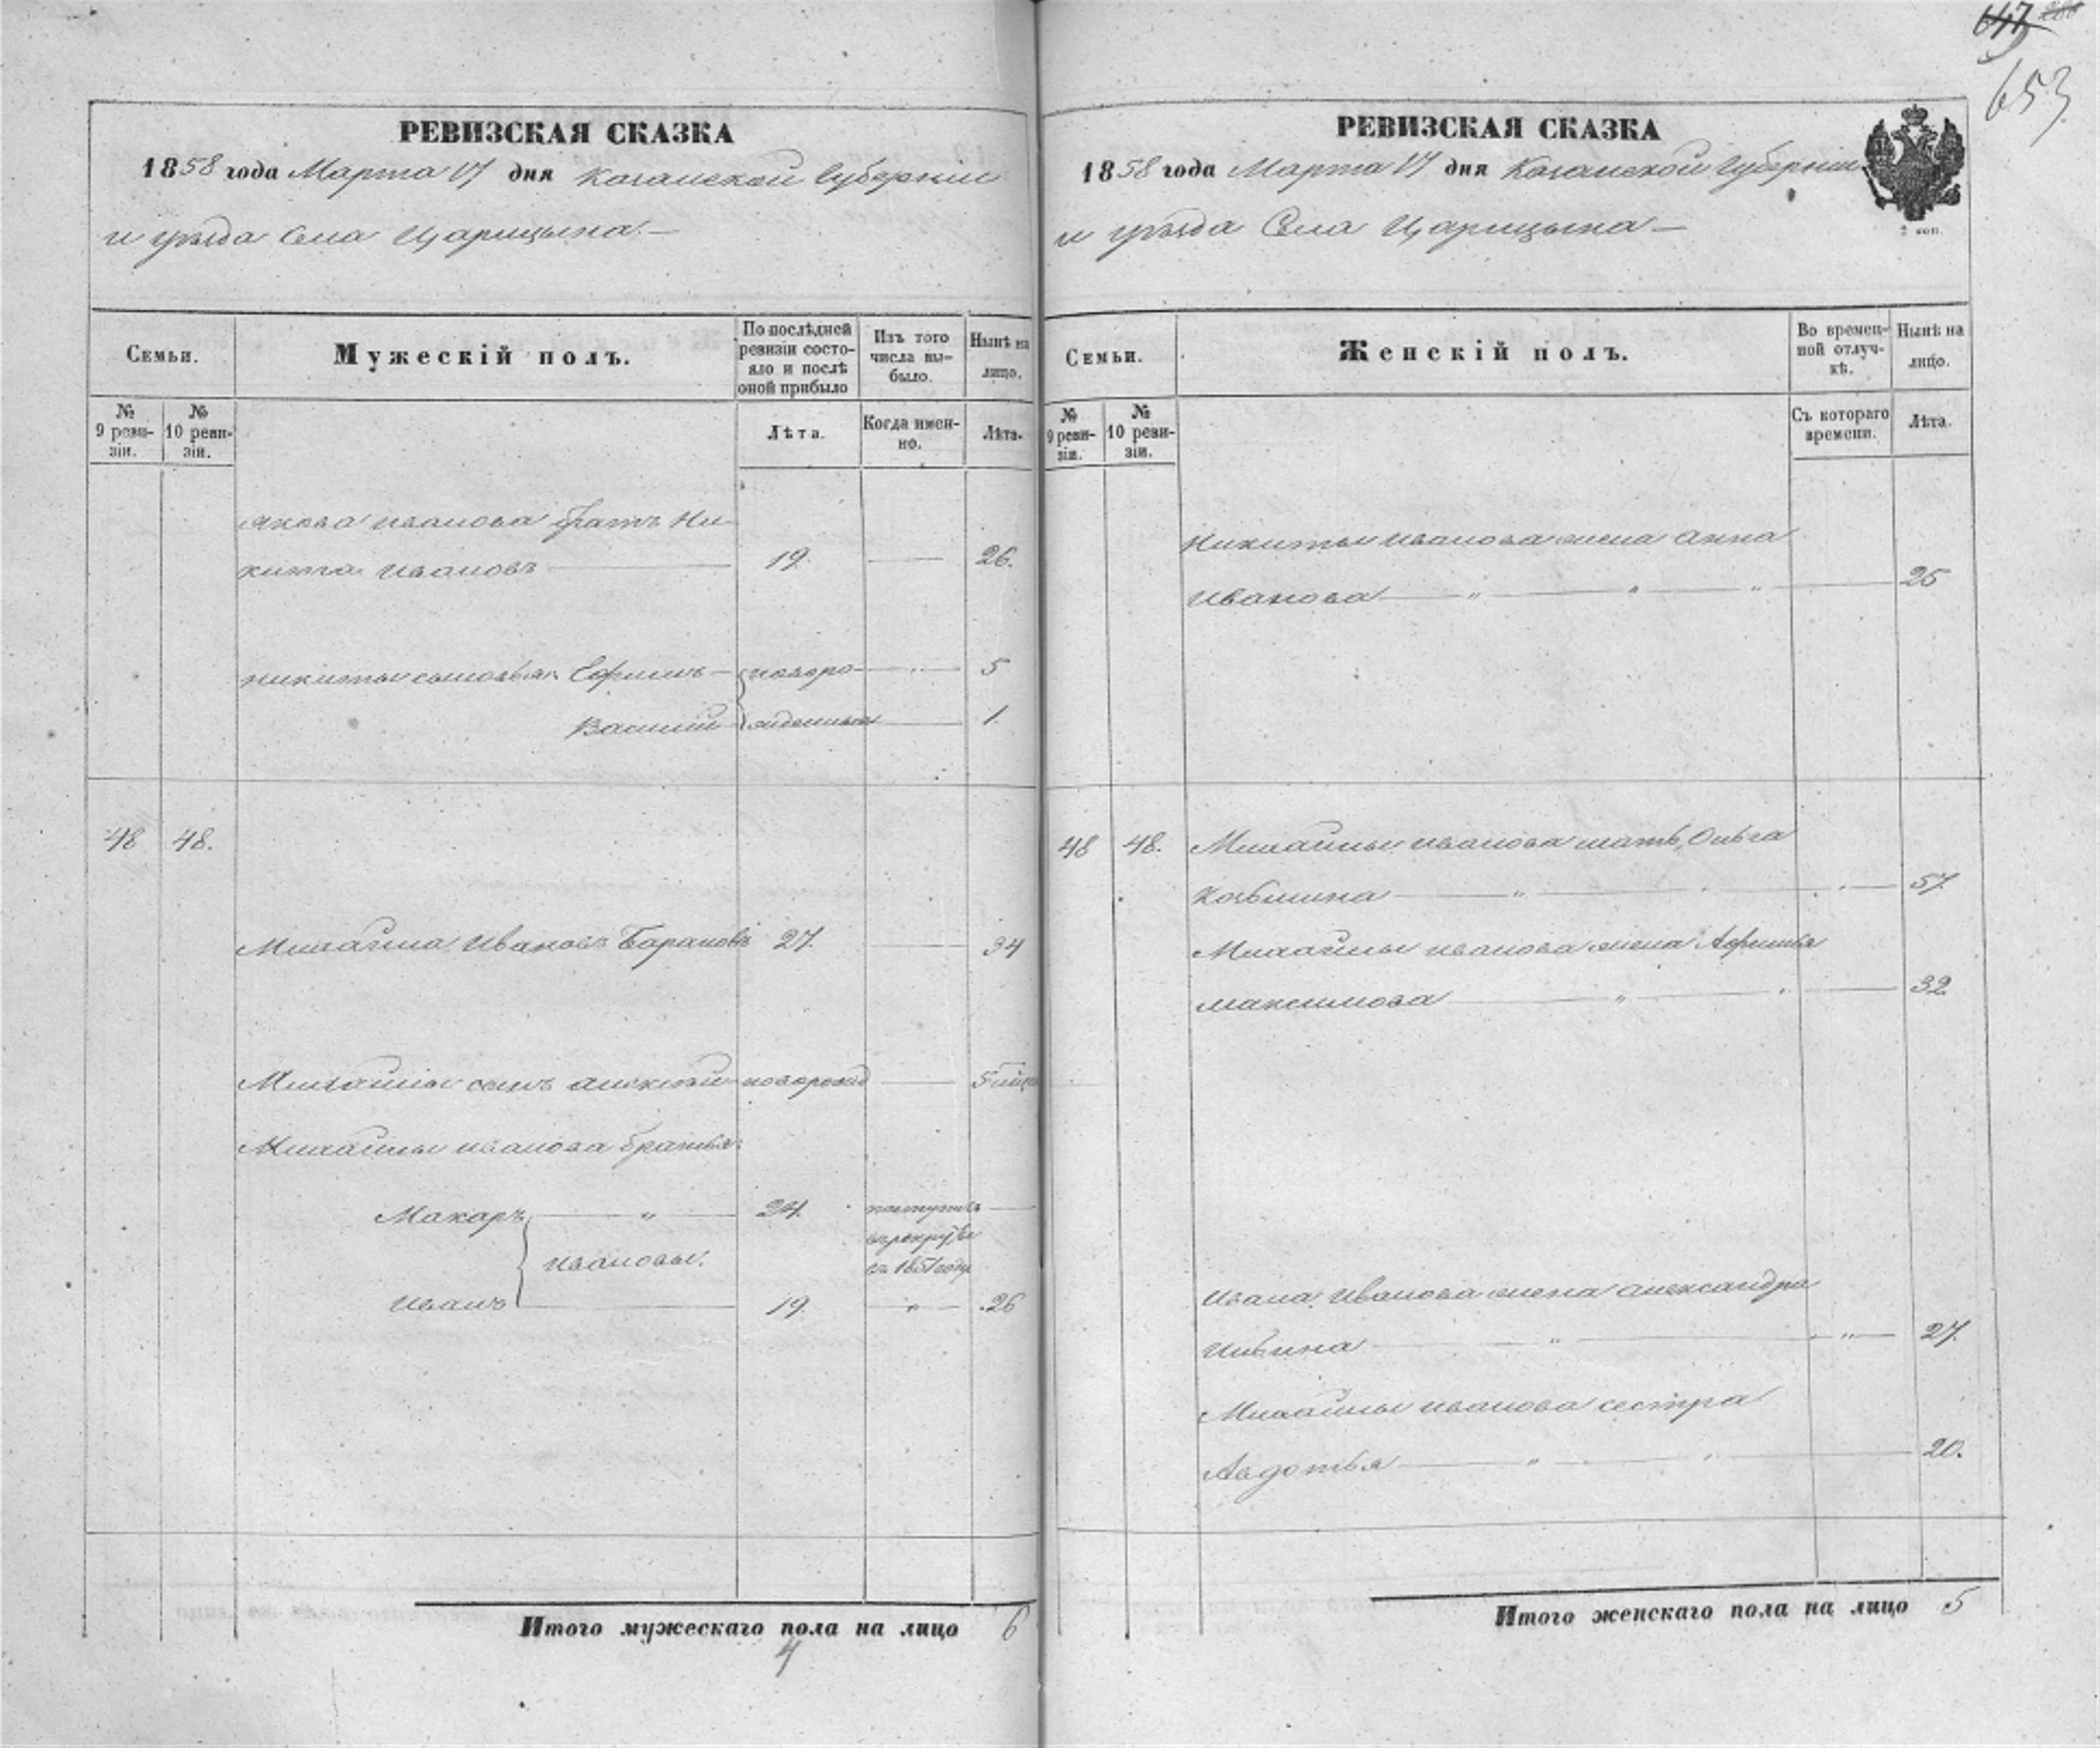 653
РЕВИЗСКАЯ СКАЗКА
1858 года Марта 17 дня Казанской Губерніи
и уѣзда Села Царицына —
Семьи.
Мужескій полъ.
По послѣдней ревизіи состояло и послѣ оной прибыло
Изъ того числа выбыло.
Нынѣ на лицо.
№ 9 ревизіи.
№ 10 ревизіи.
Лѣта.
Когда именно.
Лѣта.
Якова Иванова братъ Ни-
кита Ивановъ 19. 26.
Никиты сыновья: Ефимъ новоро- 5
Василий жденные 1.
48 48.
Михайла Ивановъ Барановъ 27. 34
Михайлы сынъ Алексѣй новорожд 5 мѣся
Михайлы Иванова братья:
Макаръ " 24. поступилъ
Ивановы. в рекруты
в 1851 году
Иванъ 19. " 26
Итого мужескаго пола на лицо 6
4
РЕВИЗСКАЯ СКАЗКА
1858 года Марта 17 дня Казанской Губерніи
и уѣзда Села Царицына —
Семьи.
Женскій полъ.
Во временной отлучкѣ.
Нынѣ на лицо.
№ 9 ревизіи.
№ 10 ревизіи.
Съ котораго времени.
Лѣта.
Никиты Иванова жена Анна
Иванова " " " 25
48 48. Михайлы Иванова мать Ольга
Козьмина " 57.
Михайлы Иванова жена Афимья
Максимова " " 32
Ивана Иванова жена Александра
Ильина " " 27.
Михайлы Иванова сестра
Авдотья " " 20.
Итого женскаго пола на лицо 5